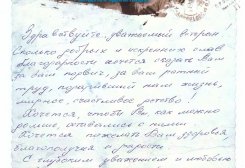 Здравствуйте, уважаемый ветеран!
Сколько добрых и искренних слов
благодарности хочется сказать Вам
за Ваш подвиг, за Ваш ратный
труд, подаривший нам жизнь,
мирное, счастливое детство!
Хочется, чтобы Вы, как можно
дольше, оставались с нами.
Хочется пожелать Вам здоровья,
благополучия и радости.
С глубоким уважением и любовью